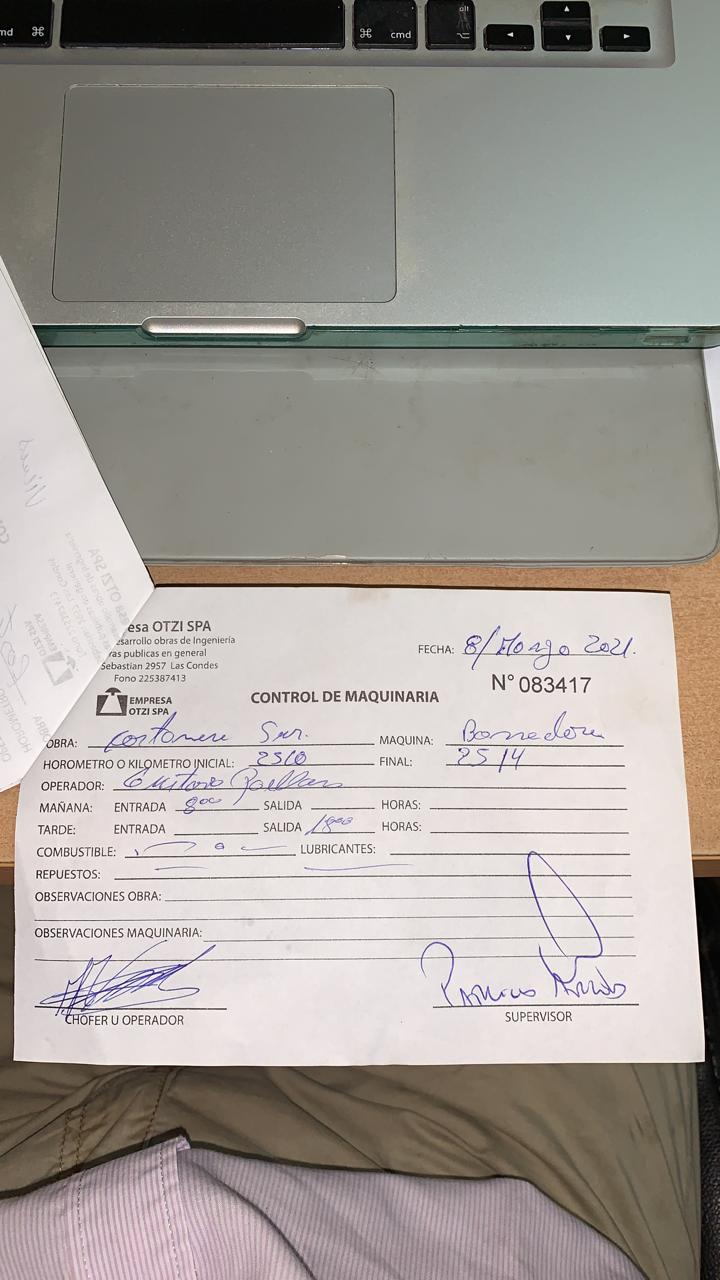 cmd ⌘
⌘ cmd
alt
esa OTZI SPA
esarrollo obras de Ingeniería
ras publicas en general
Sebastian 2957 Las Condes
Fono 225387413
EMPRESA
OTZI SPA
FECHA: 8/Marzo 2021.
N° 083417
CONTROL DE MAQUINARIA
OBRA: Costanera Sur. MAQUINA: Barredora
HOROMETRO O KILOMETRO INICIAL: 2510 FINAL: 2514
OPERADOR: Gustavo
MAÑANA: ENTRADA 8⁰⁰ SALIDA HORAS:
TARDE: ENTRADA SALIDA 18⁰⁰ HORAS:
COMBUSTIBLE: LUBRICANTES:
REPUESTOS:
OBSERVACIONES OBRA:
OBSERVACIONES MAQUINARIA:
CHOFER U OPERADOR
SUPERVISOR